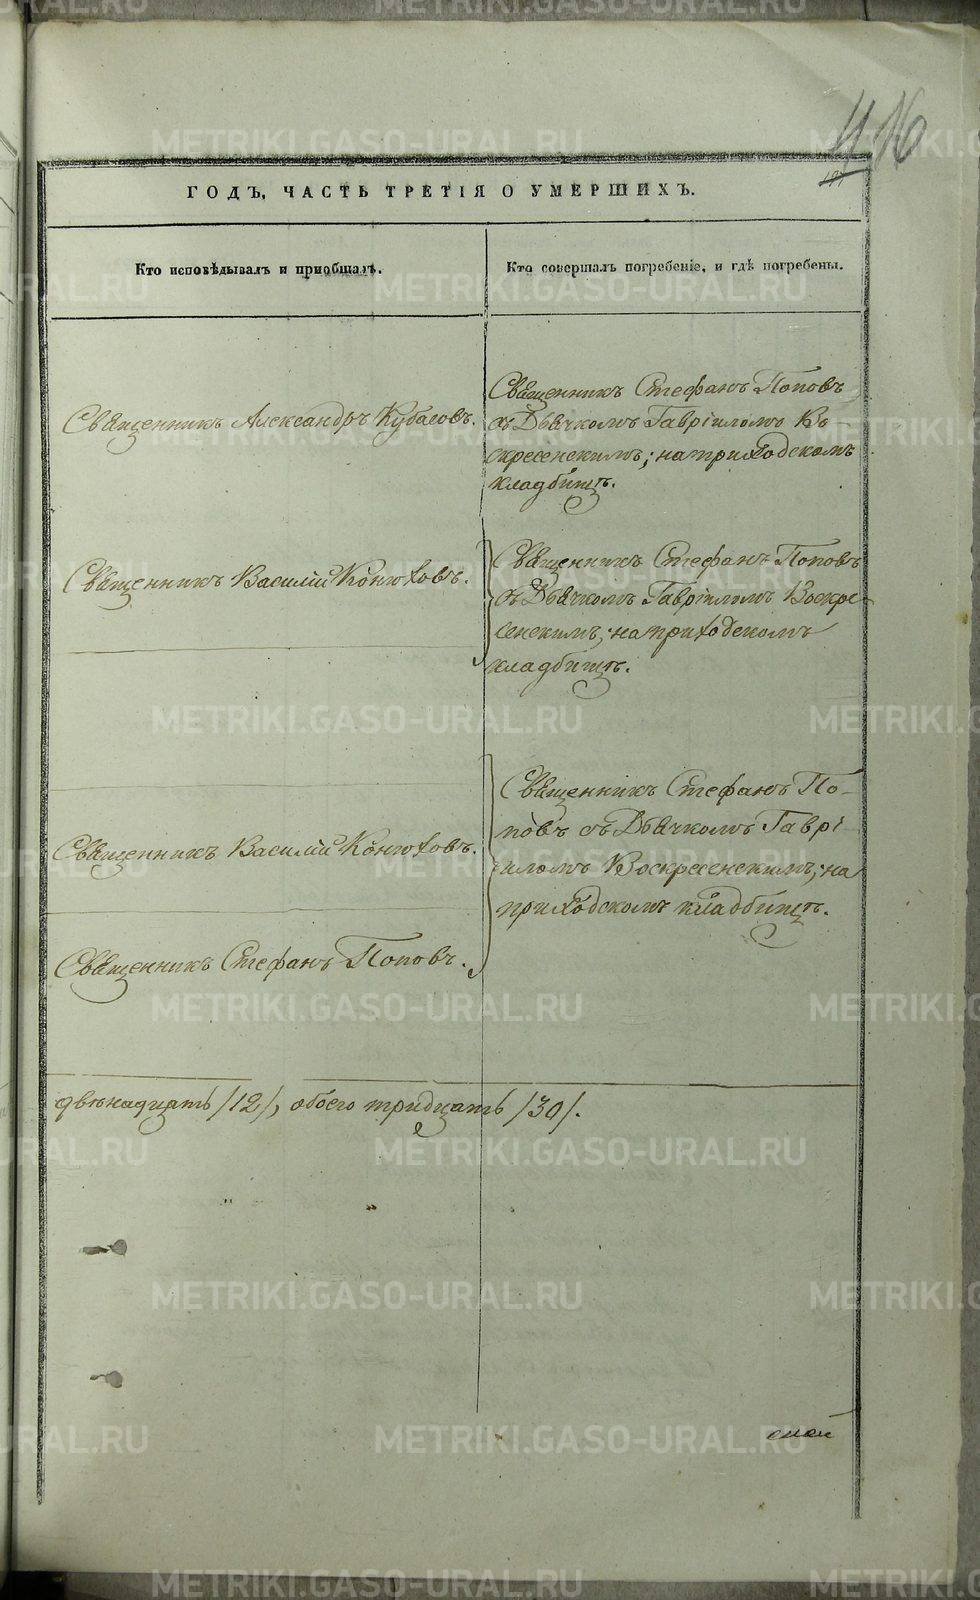 416
ГОДЪ, ЧАСТЬ ТРЕТІЯ О УМЕРШИХЪ.
Кто исповѣдывалъ и пріобщалъ.
Кто совершалъ погребеніе, и гдѣ погребены.
Священникъ Александръ Кубасовъ.
Священникъ Стефанъ Поповъ
съ Дьячкомъ Гавріиломъ Во
скресенскимъ; на приходскомъ
кладбищѣ.
Священникъ Василій Конюховъ.
Священникъ Стефанъ Поповъ
съ Дьячкомъ Гавріиломъ Воскре-
сенскимъ; на приходскомъ
кладбищѣ.
Священникъ Василій Конюховъ.
Священникъ Стефанъ Поповъ.
Священникъ Стефанъ По-
повъ съ Дьячкомъ Гаврі
иломъ Воскресенскимъ; на
приходскомъ кладбищѣ.
двѣнадцать /12/, обоего тридцать /30/.
METRIKI.GASO-URAL.RU